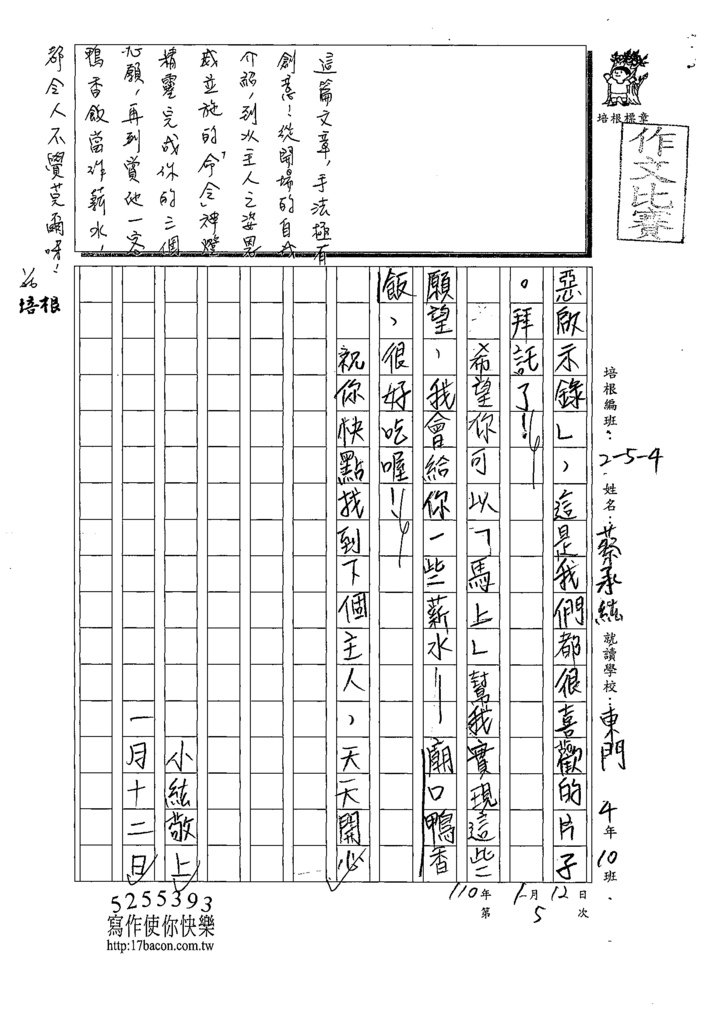 培根標章
作文比賽
培根編班：2-5-4 姓名：蔡承紘 就讀學校：東門 4年10班
110年1月12日
第5次
惡啟示錄」，這是我們都很喜歡的片子
。拜託了！
希望你可以「馬上」幫我實現這些
願望，我會給你一些薪水——廟口鴨香
飯，很好吃喔！
祝你快點找到下個主人，天天開心
小紘敬上
一月十二日
這篇文章，手法極有
創意！從開場的自我
介紹，到以主人之姿恩
威並施的「命令」神燈
精靈完成你的三個
心願，再到賞他一客
鴨香飯當作薪水，
都令人不覺莞爾呀！
培根
5255393
寫作使你快樂
http:17bacon.com.tw